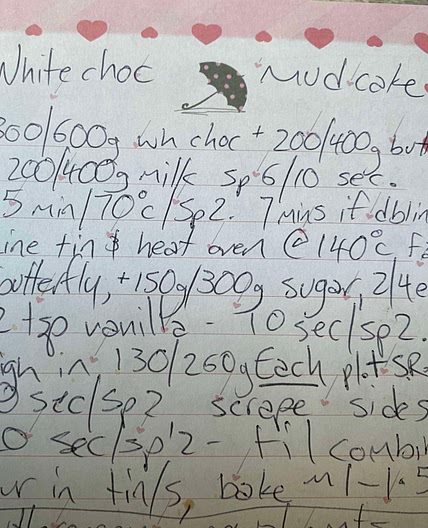 White choc Mud cake
300/600g wh choc + 200/400g but
200/400g milk sp 6/10 sec.
5 min/70°c/Sp2. 7 mins if dblin
ine tin & heat oven @ 140°c fa
butterfly, +150g/300g sugar, 2/4e
2 tsp vanilla - 10 sec/sp2.
igh in 130/260g Each pl+SR
sec/sp2 scrape sides
0 sec/sp 2 - til combin
ur in tin/s, bake ~ 1-1.5